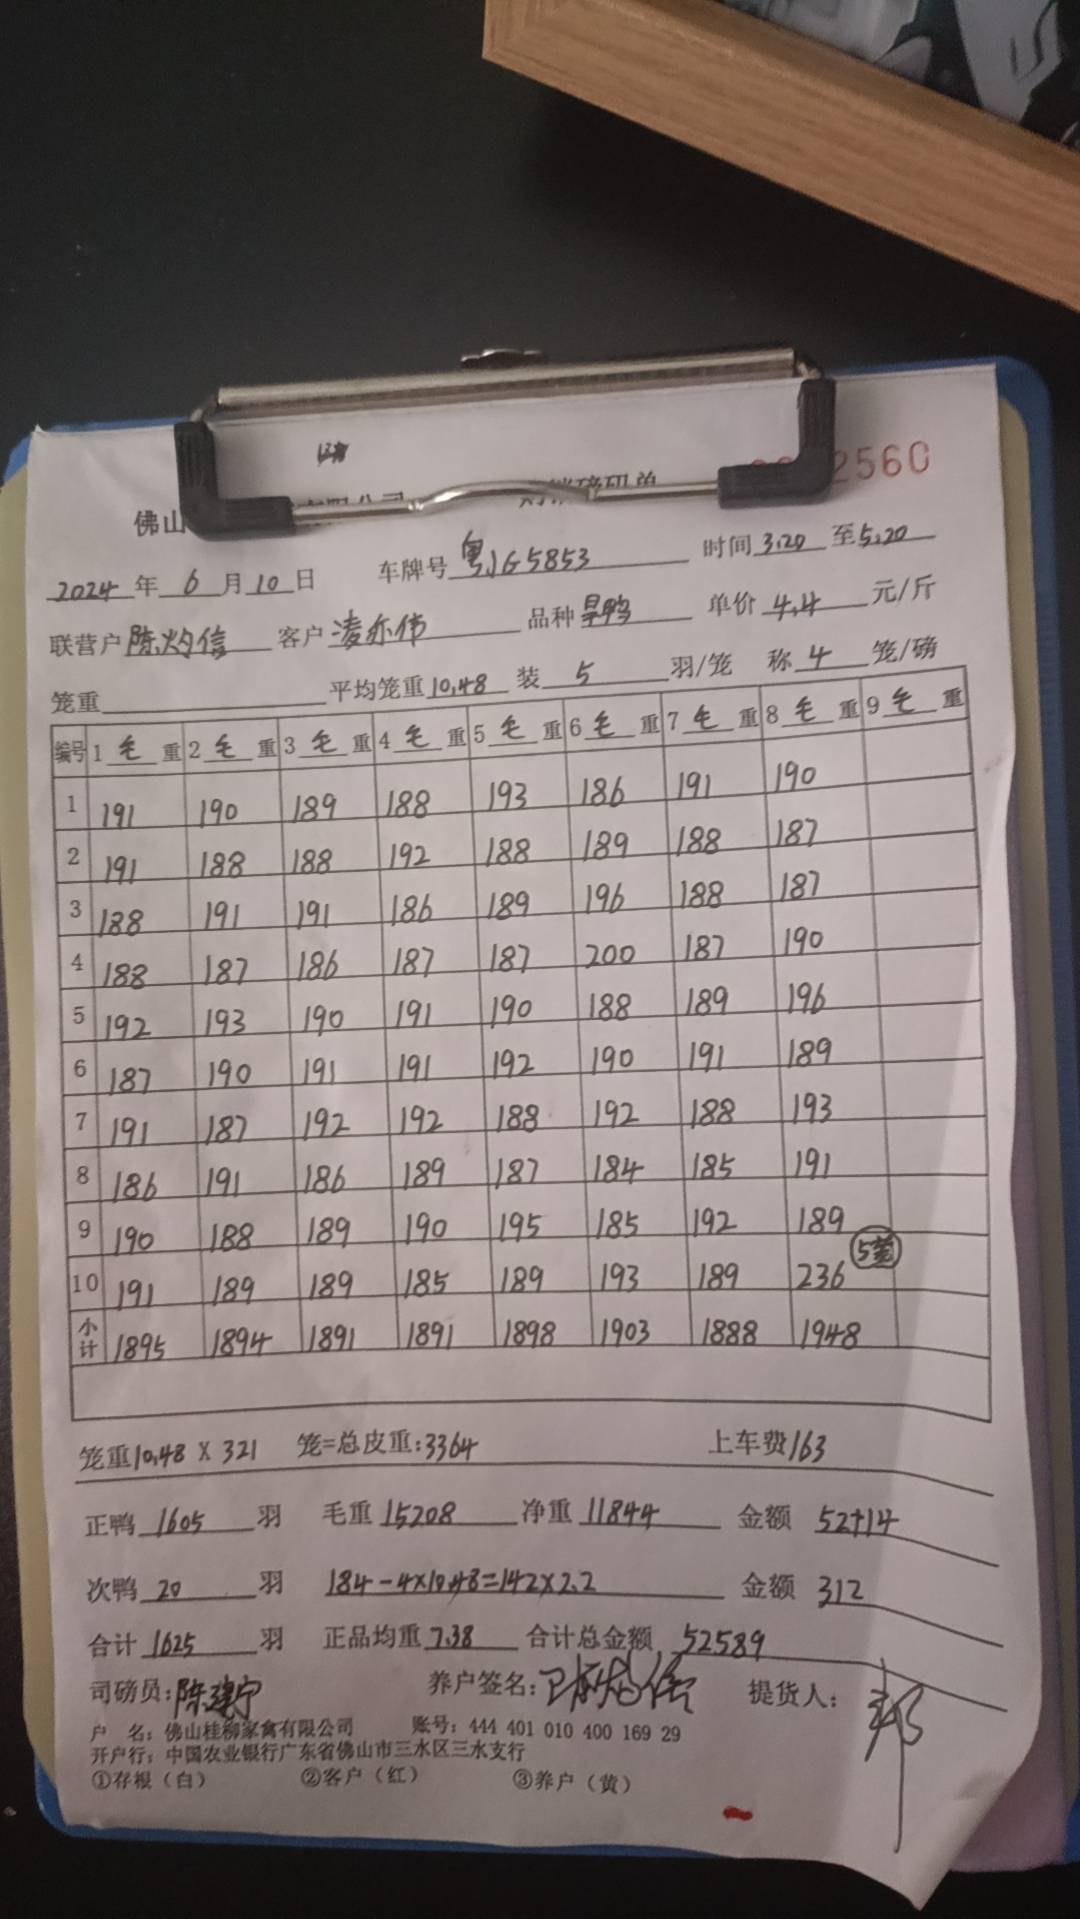 2560
佛山
2024 年 6 月 10 日 车牌号 粤JG5853 时间 3.20 至 5.20
联营户 陈灼信 客户 凌亦伟 品种 旱鸭 单价 4.4 元/斤
笼重 平均笼重 10.48 装 5 羽/笼 称 4 笼/磅
编号 1 毛 重 2 毛 重 3 毛 重 4 毛 重 5 毛 重 6 毛 重 7 毛 重 8 毛 重 9 毛 重
1 191 190 189 188 193 186 191 190
2 191 188 188 192 188 189 188 187
3 188 191 191 186 189 196 188 187
4 188 187 186 187 187 200 187 190
5 192 193 190 191 190 188 189 196
6 187 190 191 191 192 190 191 189
7 191 187 192 192 188 192 188 193
8 186 191 186 189 187 184 185 191
9 190 188 189 190 195 185 192 189
10 191 189 189 185 189 193 189 236 5笼
小计 1895 1894 1891 1891 1898 1903 1888 1948
笼重 10.48 X 321 笼=总皮重:3364 上车费 163
正鸭 1605 羽 毛重 15208 净重 11844 金额 52114
次鸭 20 羽 184-4×10.48=142×2.2 金额 312
合计 1625 羽 正品均重 7.38 合计总金额 52589
司磅员: 养户签名: 提货人:
户 名: 佛山桂柳家禽有限公司 账号: 444 401 010 400 169 29
开户行: 中国农业银行广东省佛山市三水区三水支行
①存根（白） ②客户（红） ③养户（黄）